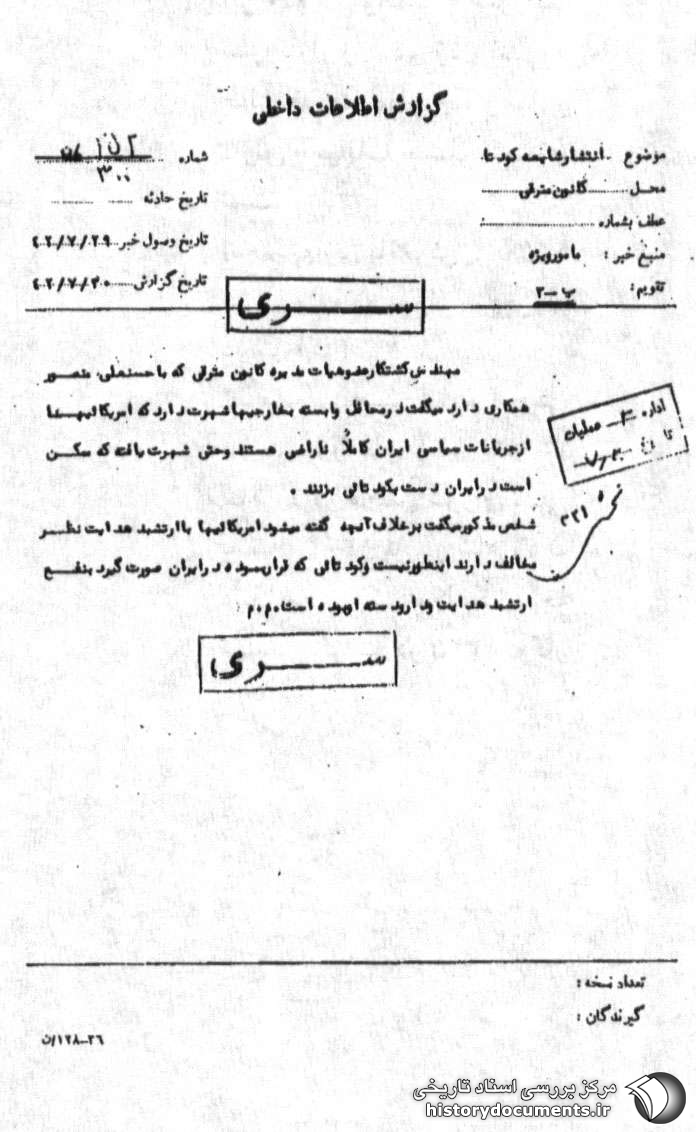 گزارش اطلاعات داخلی
موضوع انتشار شایعه کودتا
محل کانون مترقی
عطف بشماره
منبع خبر : مامور ویژه
تقویم : ب-۲
شماره
۳۰۰
تاریخ حادثه
تاریخ وصول خبر ۴۲/۷/۲۹
تاریخ گزارش ۴۲/۷/۳۰
ســری
مهندس کشتکار عضو هیات مدیره کانون مترقی که با حسنعلی منصور
همکاری دارد میگفت در محافل وابسته بخارجیها شهرت دارد که امریکائیها
از جریانات سیاسی ایران کاملاً ناراضی هستند و حتی شهرت یافته که ممکن
است در ایران دست بکودتائی بزنند .
شخص مذکور میگفت بر خلاف آنچه گفته میشود امریکائیها با ارتشبد هدایت نظر
مخالف دارند اینطور نیست و کودتائی که قرار بوده در ایران صورت گیرد بنفع
ارتشبد هدایت و دارو دسته او بوده است.م.م
اداره عملیات
۳۲۱
ســری
تعداد نسخه :
گیرندگان :
۱۲۸-۲۶/ن
مرکز بررسی اسناد تاریخی
historydocuments.ir